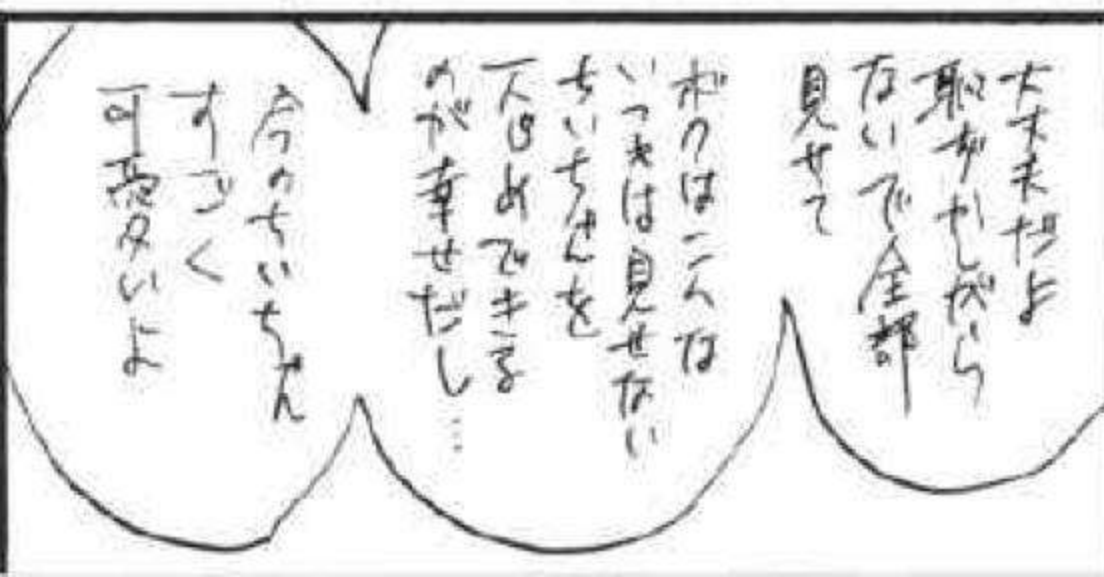 大丈夫だよ
恥ずかしがら
ないで全部
見せて
ボクはこんな
いつもは見せない
ちいちゃんを
一人じめできる
のが幸せだし…
今のちいちゃん
すごく
可愛いよ